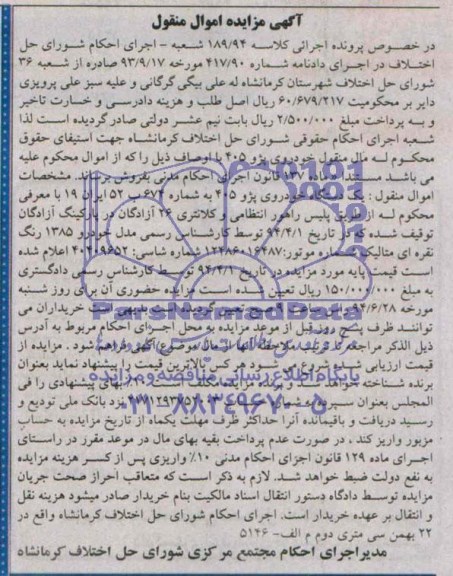 آگهی مزایده اموال منقول
در خصوص پرونده اجرائی کلاسه ۱۸۹/۹۴ شعبه - اجرای احکام شورای حل
اختلاف در اجرای دادنامه شماره ۴۱۷/۹۰ مورخه ۹۳/۹/۱۷ صادره از شعبه ۳۶
شورای حل اختلاف شهرستان کرمانشاه له علی بیگی گرگانی و علیه سبز علی پرویزی
دایر بر محکومیت ۶۰/۶۷۹/۲۱۷ ریال اصل طلب و هزینه دادرسی و خسارت تاخیر
و به پرداخت مبلغ ۲/۵۰۰/۰۰۰ ریال بابت نیم عشر دولتی صادر گردیده است لذا
شعبه اجرای احکام حقوقی شورای حل اختلاف کرمانشاه جهت استیفای حقوق
محکوم له مال منقول خودروی پژو ۴۰۵ با اوصاف ذیل را که از اموال محکوم علیه
می باشد مستندا ماده ۱۳۷ قانون اجرای احکام مدنی بفروش برساند. مشخصات
اموال منقول: یک خودروی پژو ۴۰۵ به شماره ۶۷۴ ب ۵۲ ایران ۱۹ با معرفی
محکوم له از طریق پلیس راهور انتظامی و کلانتری ۲۶ آزادگان در پارکینگ آزادگان
توقیف شده که در تاریخ ۹۴/۴/۱ توسط کارشناس رسمی مدل خودرو ۱۳۸۵ رنگ
نقره ای متالیک شماره موتور: ۱۲۴۸۶۰۱۶۴۸۷ شماره شاسی: ۴۰۴۰۹۶۵۲ اعلام شده
است قیمت پایه مورد مزایده در تاریخ ۹۴/۴/۱ توسط کارشناس رسمی دادگستری
به مبلغ ۱۵۰/۰۰۰/۰۰۰ ریال تعیین شده است مزایده حضوری آن برای روز شنبه
مورخه ۹۴/۶/۲۸ تعیین گردیده است خریداران می
توانند ظرف پنج روز قبل از موعد مزایده به محل اجرای احکام مربوط به آدرس
ذیل الذکر مراجعه تا ترتیب ملاحظه آنها از مال موضوع آگهی فراهم شود. مزایده از
قیمت ارزیابی شده شروع می شود و هر کس بالاترین قیمت را پیشنهاد نماید بعنوان
برنده شناخته خواهد شد و برنده مزایده مکلف است بهای پیشنهادی را فی
المجلس بعنوان سپرده به شماره نزد بانک ملی تودیع و
رسید دریافت و باقیمانده آنرا حداکثر ظرف مهلت یکماه از تاریخ مزایده به حساب
مزبور واریز کند، در صورت عدم پرداخت بقیه بهای مال در موعد مقرر در راستای
اجرای ماده ۱۲۹ قانون اجرای احکام مدنی ۱۰٪ واریزی پس از کسر هزینه مزایده
به نفع دولت ضبط خواهد شد. لازم به ذکر است که متعاقب احراز صحت جریان
مزایده توسط دادگاه دستور انتقال اسناد مالکیت بنام خریدار صادر میشود هزینه نقل
و انتقال بر عهده خریدار است. اجرای احکام شورای حل اختلاف کرمانشاه واقع در
۲۲ بهمن سی متری دوم م الف- ۵۱۴۶
مدیر اجرای احکام مجتمع مرکزی شورای حل اختلاف کرمانشاه
ParsNamadData
پایگاه اطلاع رسانی مناقصه و مزایده
۰۲۱-۸۸۳۴۹۶۷۰-۵